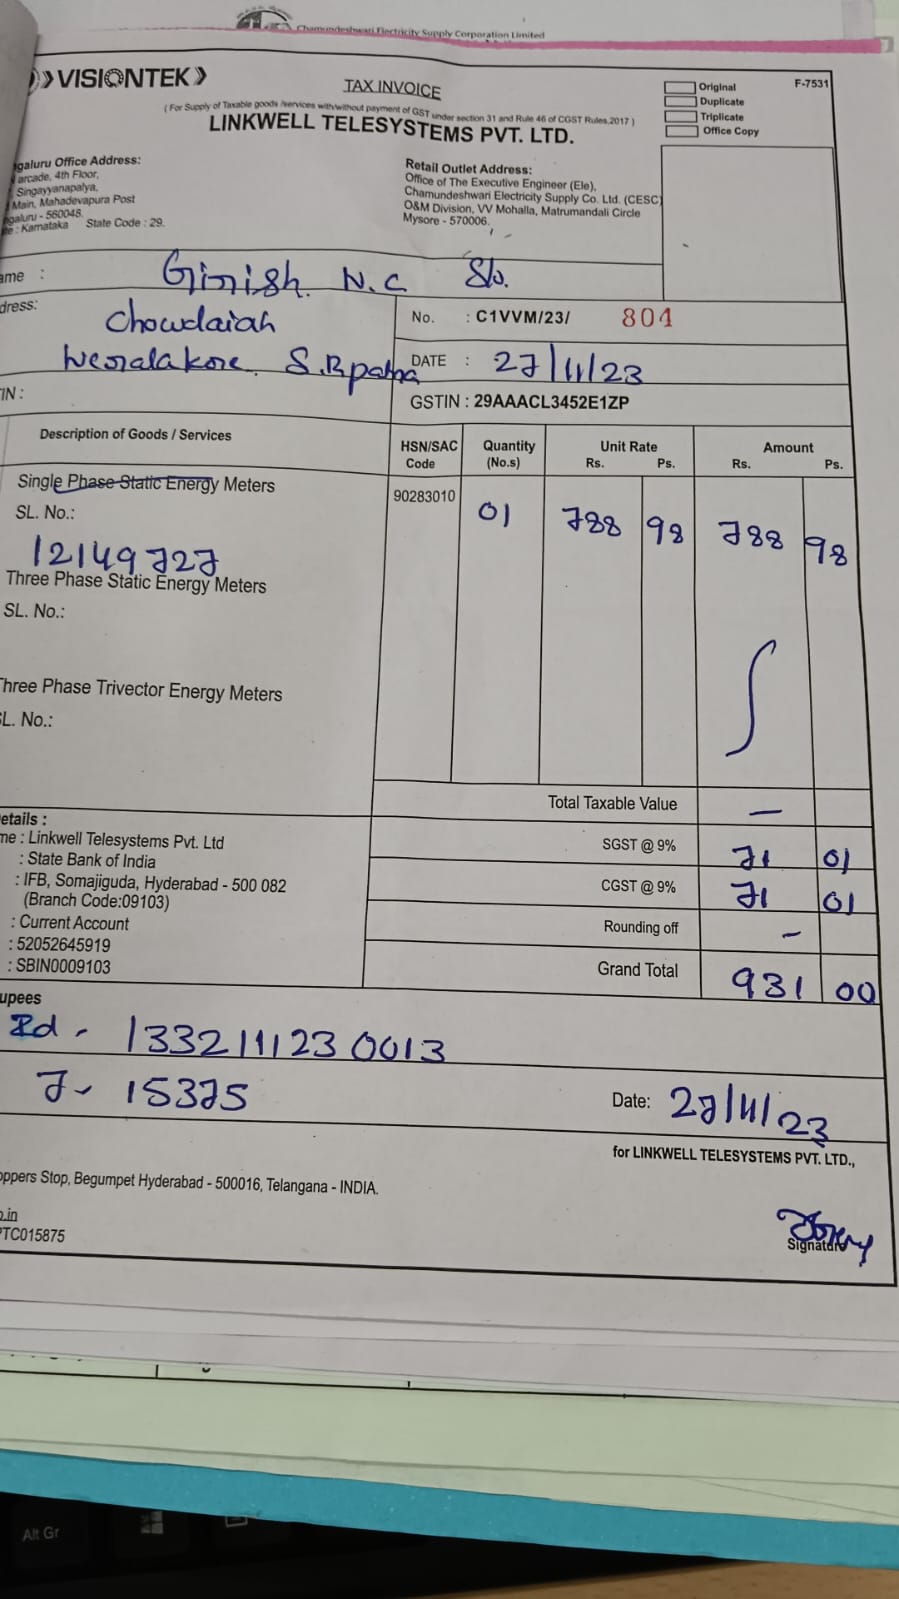 Chamundeshwari Electricity Supply Corporation Limited
VISIONTEK
TAX INVOICE
F-7531
Original
Duplicate
Triplicate
Office Copy
( For Supply of Taxable goods /services with/without payment of GST under section 31 and Rule 46 of CGST Rules,2017 )
LINKWELL TELESYSTEMS PVT. LTD.
galuru Office Address:
arcade, 4th Floor,
Singayyanapalya,
Main, Mahadevapura Post
galuru - 560048.
te : Karnataka State Code : 29.
Retail Outlet Address:
Office of The Executive Engineer (Ele),
Chamundeshwari Electricity Supply Co. Ltd. (CESC)
O&M Division, VV Mohalla, Matrumandali Circle
Mysore - 570006.
ame : Girish. N.C S/o.
dress: Chowdaiah
S.R patna
No. : C1VVM/23/ 804
DATE : 27/11/23
TIN :
GSTIN : 29AAACL3452E1ZP
Description of Goods / Services HSN/SAC Code Quantity (No.s) Unit Rate Rs. Ps. Amount Rs. Ps.
Single Phase Static Energy Meters 90283010 01 788 98 788 98
SL. No.:
12149727
Three Phase Static Energy Meters
SL. No.:
Three Phase Trivector Energy Meters
SL. No.:
Total Taxable Value —
SGST @ 9% 71 01
CGST @ 9% 71 01
Rounding off –
Grand Total 931 00
etails :
me : Linkwell Telesystems Pvt. Ltd
: State Bank of India
: IFB, Somajiguda, Hyderabad - 500 082
(Branch Code:09103)
: Current Account
: 52052645919
: SBIN0009103
upees
Id - 133211123 0013
7- 15375
Date: 27/11/23
for LINKWELL TELESYSTEMS PVT. LTD.,
oppers Stop, Begumpet Hyderabad - 500016, Telangana - INDIA.
o.in
PTC015875
Signature
Alt Gr